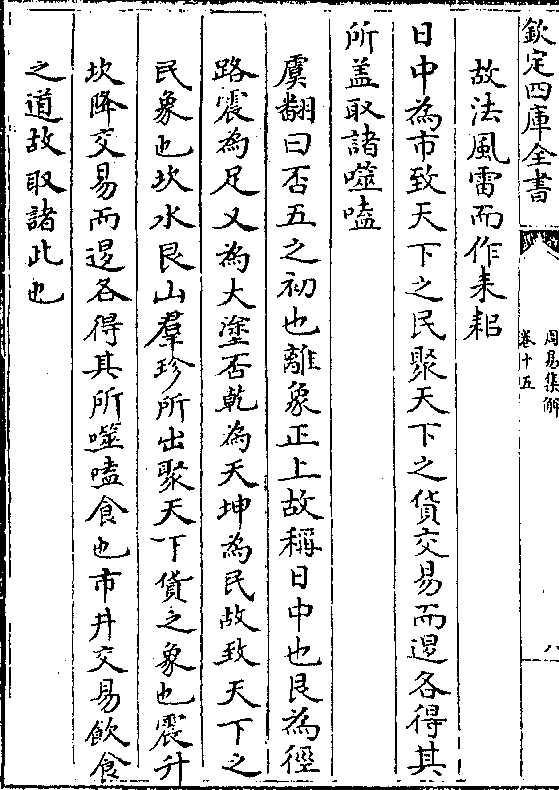 欽定四庫全書
周易集解
卷十五
八
故法風雷而作耒耜
日中為市致天下之民聚天下之貨交易而退各得其
所盖取諸噬嗑
虞翻曰否五之初也離象正上故稱日中也艮為徑
路震為足又為大塗否乾為天坤為民故致天下之
民象也坎水艮山羣珍所出聚天下貨之象也震升
坎降交易而退各得其所噬嗑食也市井交易飲食
之道故取諸此也